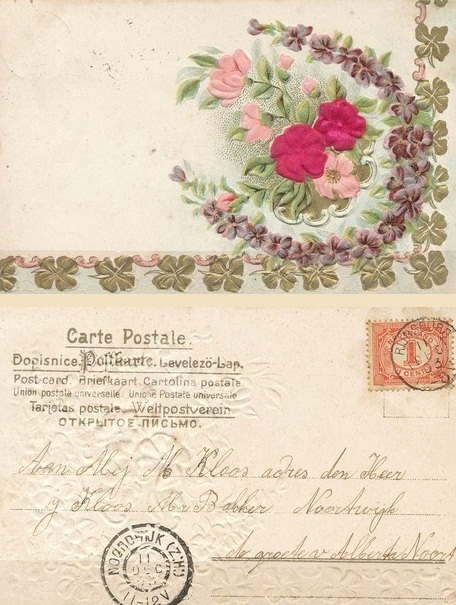 Carte Postale.
Dopisnice. Postkarte. Levelező-Lap.
Post card. Briefkaart. Cartolina postale.
Union postale universelle. Unione Postale universale.
Tarjetas postale. Weltpostverein.
ОТКРЫТОЕ ПИСЬМО.
1
CENT
Aan Mej M Kloos adres den Heer
J Kloos Mr Bakker Noortwijk
de groete v Alberta Noort
NOORDWIJK (Z:H:)
11
DEC
11-12V